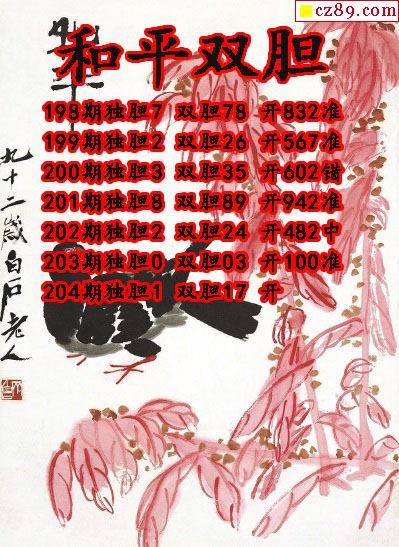 cz89.com
和平双胆
198期独胆7 双胆78 开832准
199期独胆2 双胆26 开567准
200期独胆3 双胆35 开602错
201期独胆8 双胆89 开942准
202期独胆2 双胆24 开482中
203期独胆0 双胆03 开100准
204期独胆1 双胆17 开
九十二岁白石老人